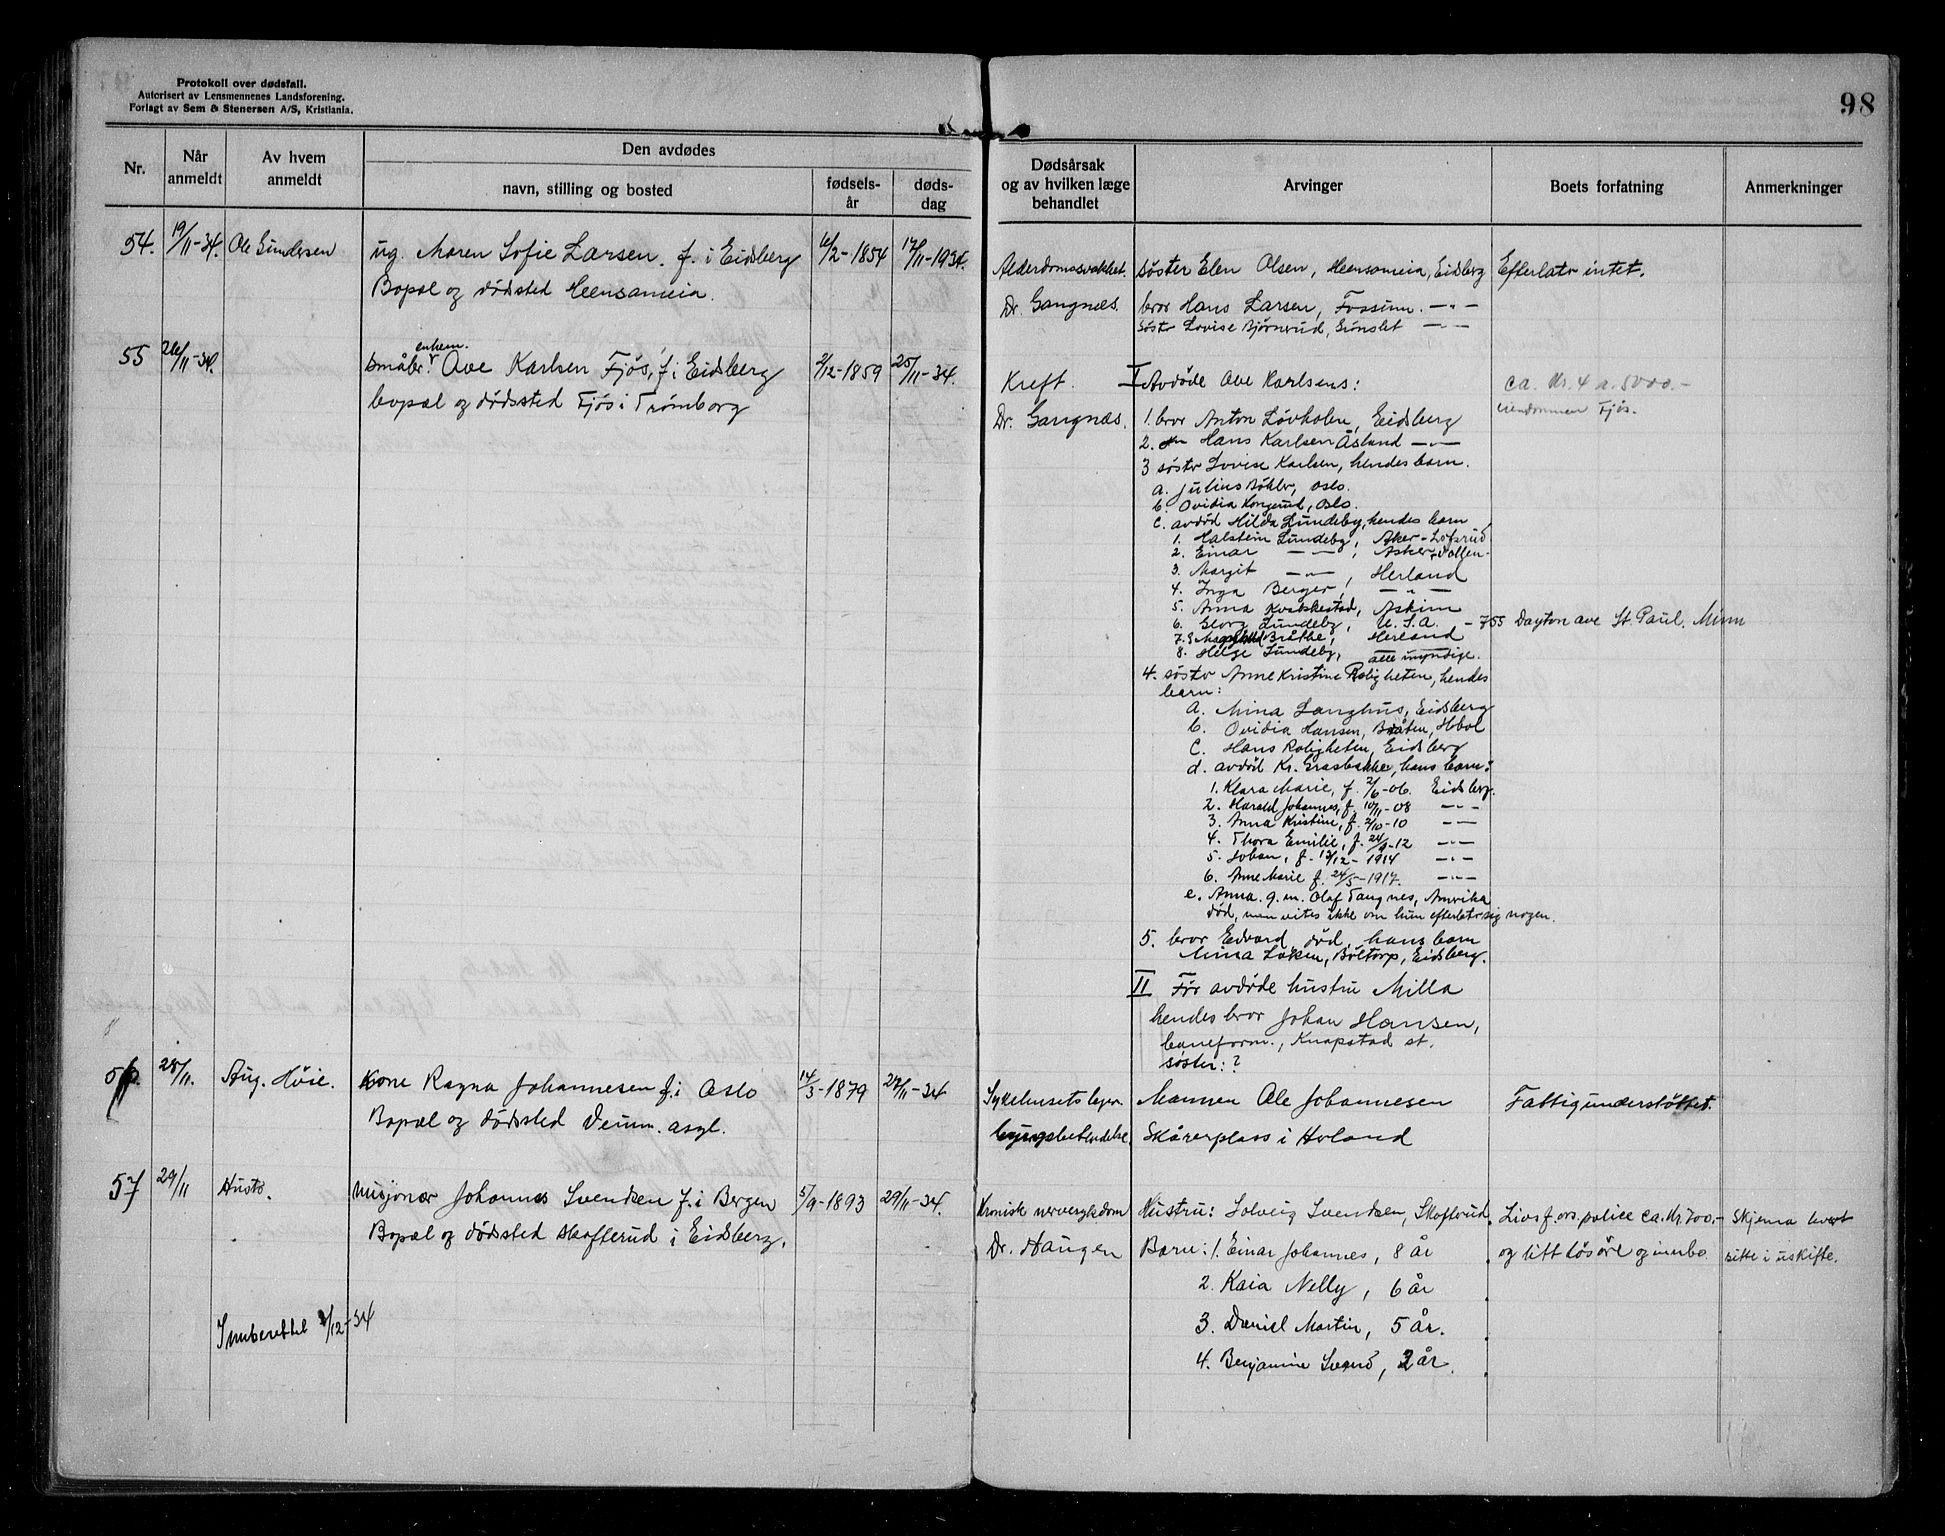 Protokoll over dødsfall.
Autorisert av Lensmennenes Landsforening.
Forlagt av Sem & Stenersen A/S, Kristiania.
98
Nr.
Når anmeldt
Av hvem anmeldt
Den avdødes
navn, stilling og bosted
fødsels-år
døds-dag
Dødsårsak og av hvilken læge behandlet
Arvinger
Boets forfatning
Anmerkninger
54. 19/11-34. Ole Gundersen ug. Maren Sofie Larsen. f. i Eidsberg 16/2-1854 17/11-1934.
Bopæl og dødsted Heensameia.
Alderdomssvakhet. søster Elen Olsen, Heensameia, Eidsberg Efterlatr intet.
Dr. Gangnæs. bror Hans Larsen, Fossum. -"-
søster Lovise Bjørnrud, Grinslet -"-
55 26/11-34. småbr. enkem. Ove Karlsen Fjøs, f. i Eidsberg 2/12-1859 25/11-34.
bopæl og dødssted Fjøs i Trømborg
Kreft. I Avdøde Ove Karlsens: ca. Kr. 4 a. 5000.-
eiendommen Fjøs.
Dr. Gangnæs. 1. bror Anton Løvholen, Eidsberg
2. Hans Karlsen Åsland -"-
3 søster Lovise Karlsen, hendes barn.
a. Julius Bøhler, Oslo.
b. Ovidia Kongerud, Oslo.
c. avdød Hilda Lundeby, hendes barn
1. Halstein Lundeby, Aker - Lofsrud
2. Einar -"-, Asker, Vollen-
3. Margit -"-, Herland
4. Inga Berger, -"-
5. Anna Kvakkestad, Askim
6. Georg Lundeby, U.S.A. - 755 Dayton ave St. Paul. Minn
7. Magnhild Bråthe, Herland
8. Helge Lundeby, alle myndige.
4. søster Anne Kristine Roligheten, hendes
barn:
a. Mina Langhus, Eidsberg
b. Ovidia Hansen, Bråten, Hobøl
c. Hans Roligheten, Eidsberg
d. avdød Kr. Grasbakke, hans barn:
1. Klara Marie, f. 2/6-06. Eidsberg.
2. Harald Johannes, f. 10/11-08 -"-
3. Anna Kristine, f. 2/10-10 -"-
4. Thora Emilie, f. 24/9-12 -"-
5. Johan, f. 13/12-1914 -"-
6. Anne Marie f. 24/5-1917. -"-
e. Anna. g. m. Olaf Tangnes, Amerika
død, man vites ikke om hun efterlatr sig nogen.
5. bror Edvard, død, hans barn
Mina Løken, Bøltorp, Eidsberg.
II Før avdøde hustru Milla
hendes bror Johan Hansen,
baneform., Knapstad st.
søster: ?
56. 28/11. Aug. Høie. Kone Ragna Johannesen f. i Oslo 14/3-1879 27/11-34
Bopæl og dødsted Deum. asyl.
Sykehusets læger Mannen Ole Johannesen Fattigunderstøttet.
lungebetendelse. Skårerplass i Høland
57 29/11 Hustr. misjonær Johannes Svendsen f. i Bergen 5/9-1893 29/11-34.
Bopæl og dødsted Skofterud i Eidsberg.
Kronisk nervesykedom Hustru: Solveig Svendsen, Skofterud. Livsf.ors. police ca. Kr. 700.- Skjema hvert
Dr. Haugen Barn: 1. Einar Johannes, 8 år og litt løsøre og innbo. sitte i uskifte.
2. Kaia Nelly, 6 år
3. Daniel Martin, 5 år.
4. Benjamine Svend, 2 år.
Innberettet 1/12-34